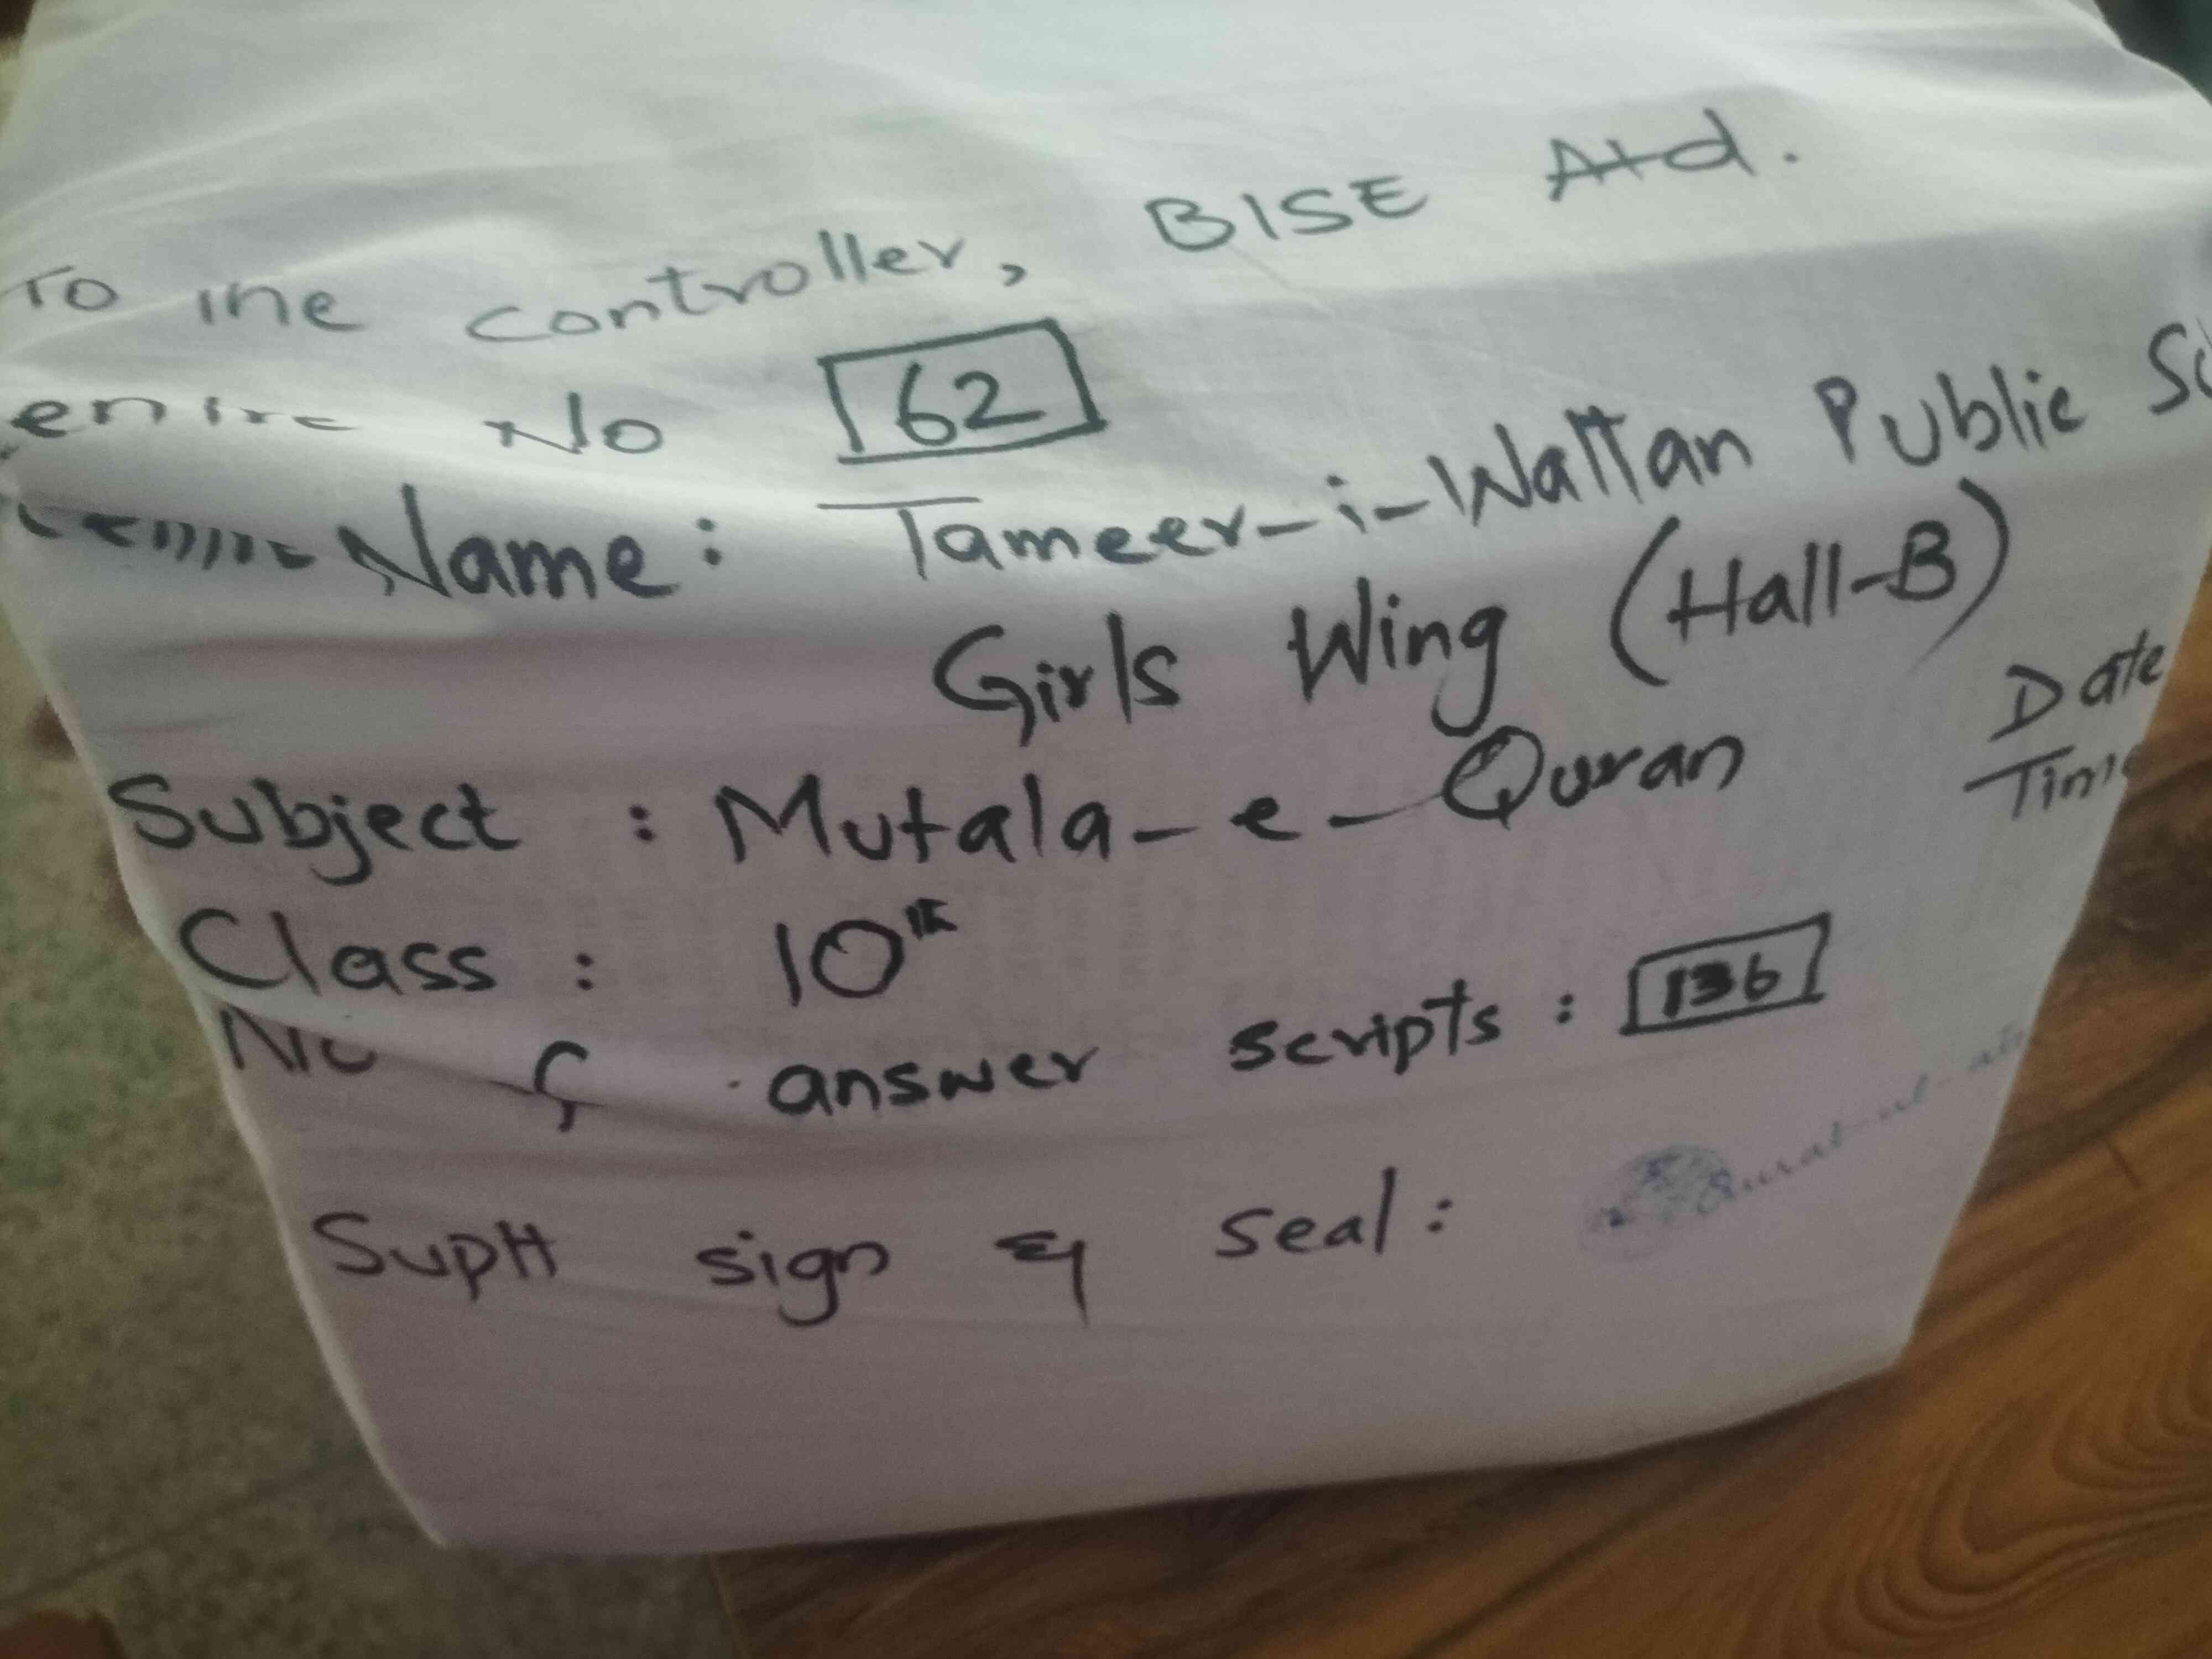 To the Controller, BISE Atd.
entre No 62
Name: Tameer-i-Wattan Public Sc
Girls Wing (Hall-B)
Subject : Mutala-e-Quran
Date
Time
Class : 10th
No of answer scripts : 136
Suptt sign & seal :